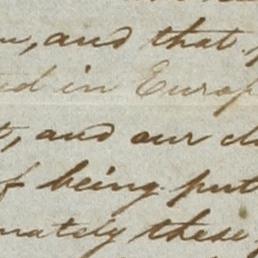 and that
ed in Europ
, and our
of being put
mately these